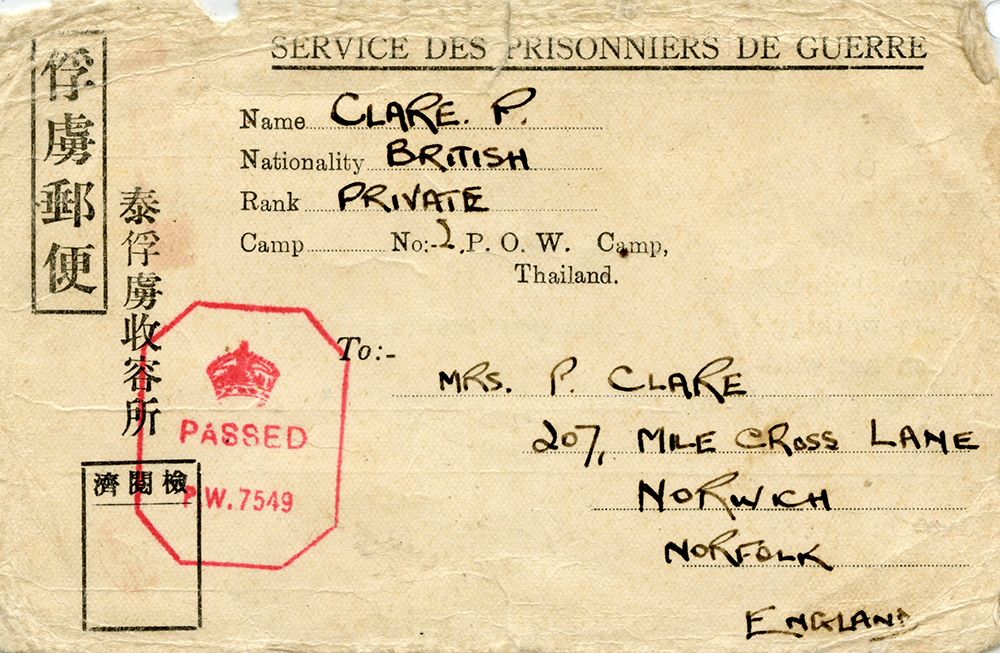 SERVICE DES PRISONNIERS DE GUERRE
俘虜郵便
泰俘虜收容所
Name CLARE. P.
Nationality BRITISH
Rank PRIVATE
Camp No:-2.P. O. W. Camp,
Thailand.
To:-
MRS. P. CLARE
207, MILE CROSS LANE
NORWICH
NORFOLK
ENGLAND
PASSED
P.W.7549
濟閲檢